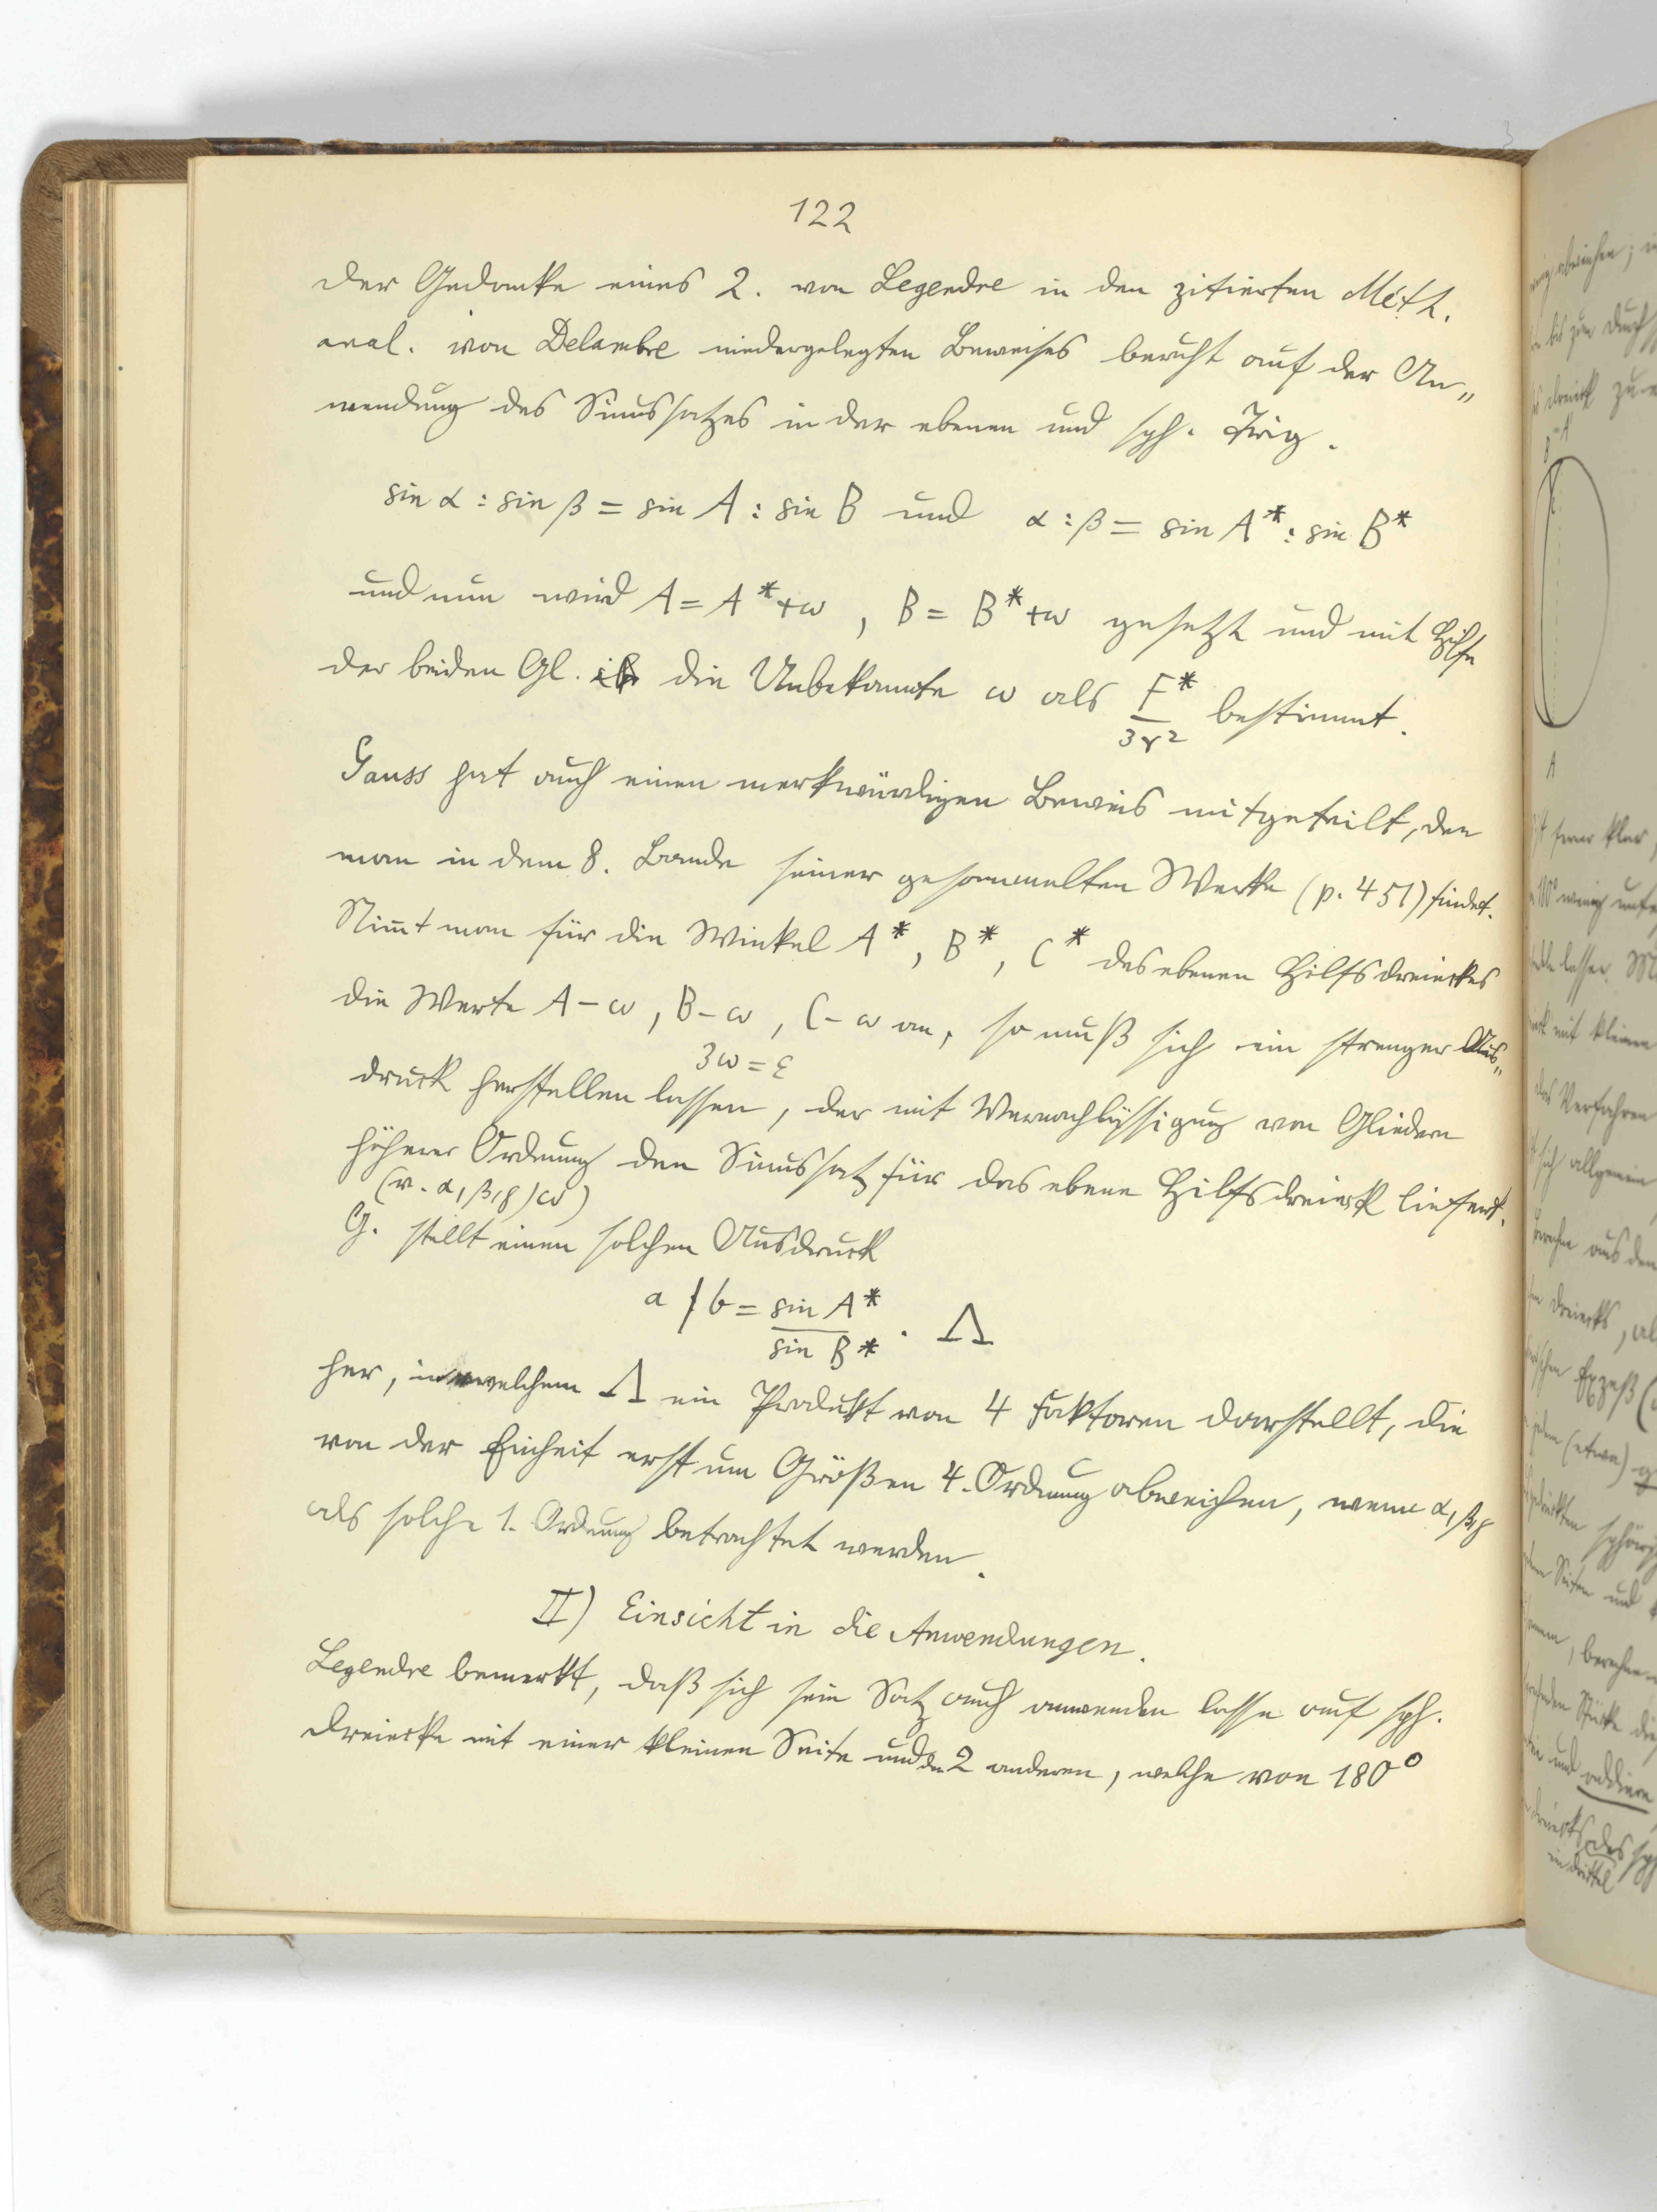 122
Der Gedanke eines 2. von Legendre in den zitierten Méth.
anal. von Delambre niedergelegten Beweises beruht auf der An„
wendung des Sinussatzes in der ebenen und sph. Trig.
sin α : sin β = sin A : sin B und α : β = sin A* : sin B*
und nun wird A = A* + ω , B = B* + ω gesetzt und mit Hilfe
der beiden Gl. die Unbekannte ω als F*/3r² bestimmt.
Gauss hat auch einen merkwürdigen Beweis mitgeteilt, den
man in dem 8. Bande seiner gesammelten Werke (p. 451) findet.
Nim̄t man für die Winkel A*, B*, C* des ebenen Hilfsdreieckes
die Werte A – ω, B – ω, C – ω an, so muß sich ein strenger Aus„
3ω = ε
druck herstellen lassen, der mit Vernachlässigung von Gliedern
höherer Ordnung den Sinussatz für das ebene Hilfsdreieck liefert.
(v. α, β, γ, ω)
G. stellt einen solchen Ausdruck
a / b = sin A* / sin B* · Λ
her, in welchem Λ ein Produkt von 4 Faktoren darstellt, die
von der Einheit erst um Größen 4. Ordnung abweichen, wenn α, β, γ
als solche 1. Ordnung betrachtet werden.
II) Einsicht in die Anwendungen.
Legendre bemerkt, daß sich sein Satz auch anwenden lasse auf sph.
Dreiecke mit einer kleinen Seite und den 2 anderen, welche von 180°